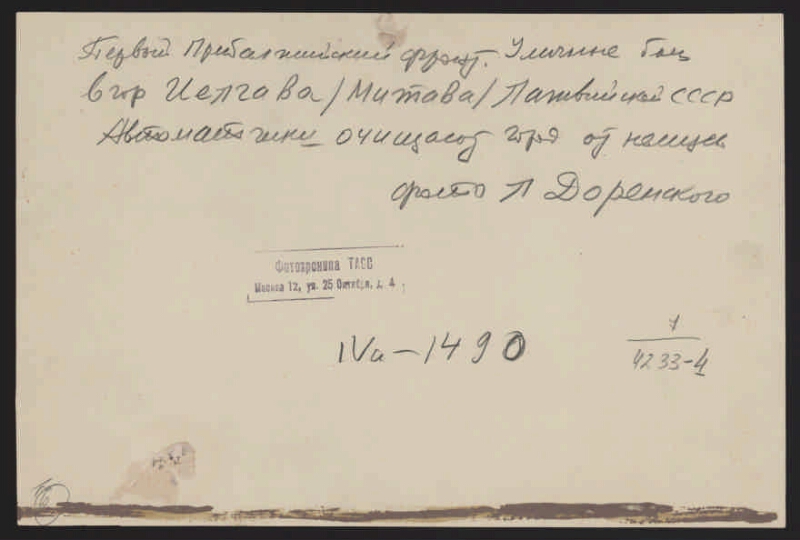 Первый Прибалтийский фронт. Уличные бои
в гор Иелгава /Митава/ Латвийской СССР
Автоматчики очищают город от немцев
фото Л Доренского
Фотохроника ТАСС
Москва 12, ул. 25 Октября, д. 4
IVа-1490
1
4233-4